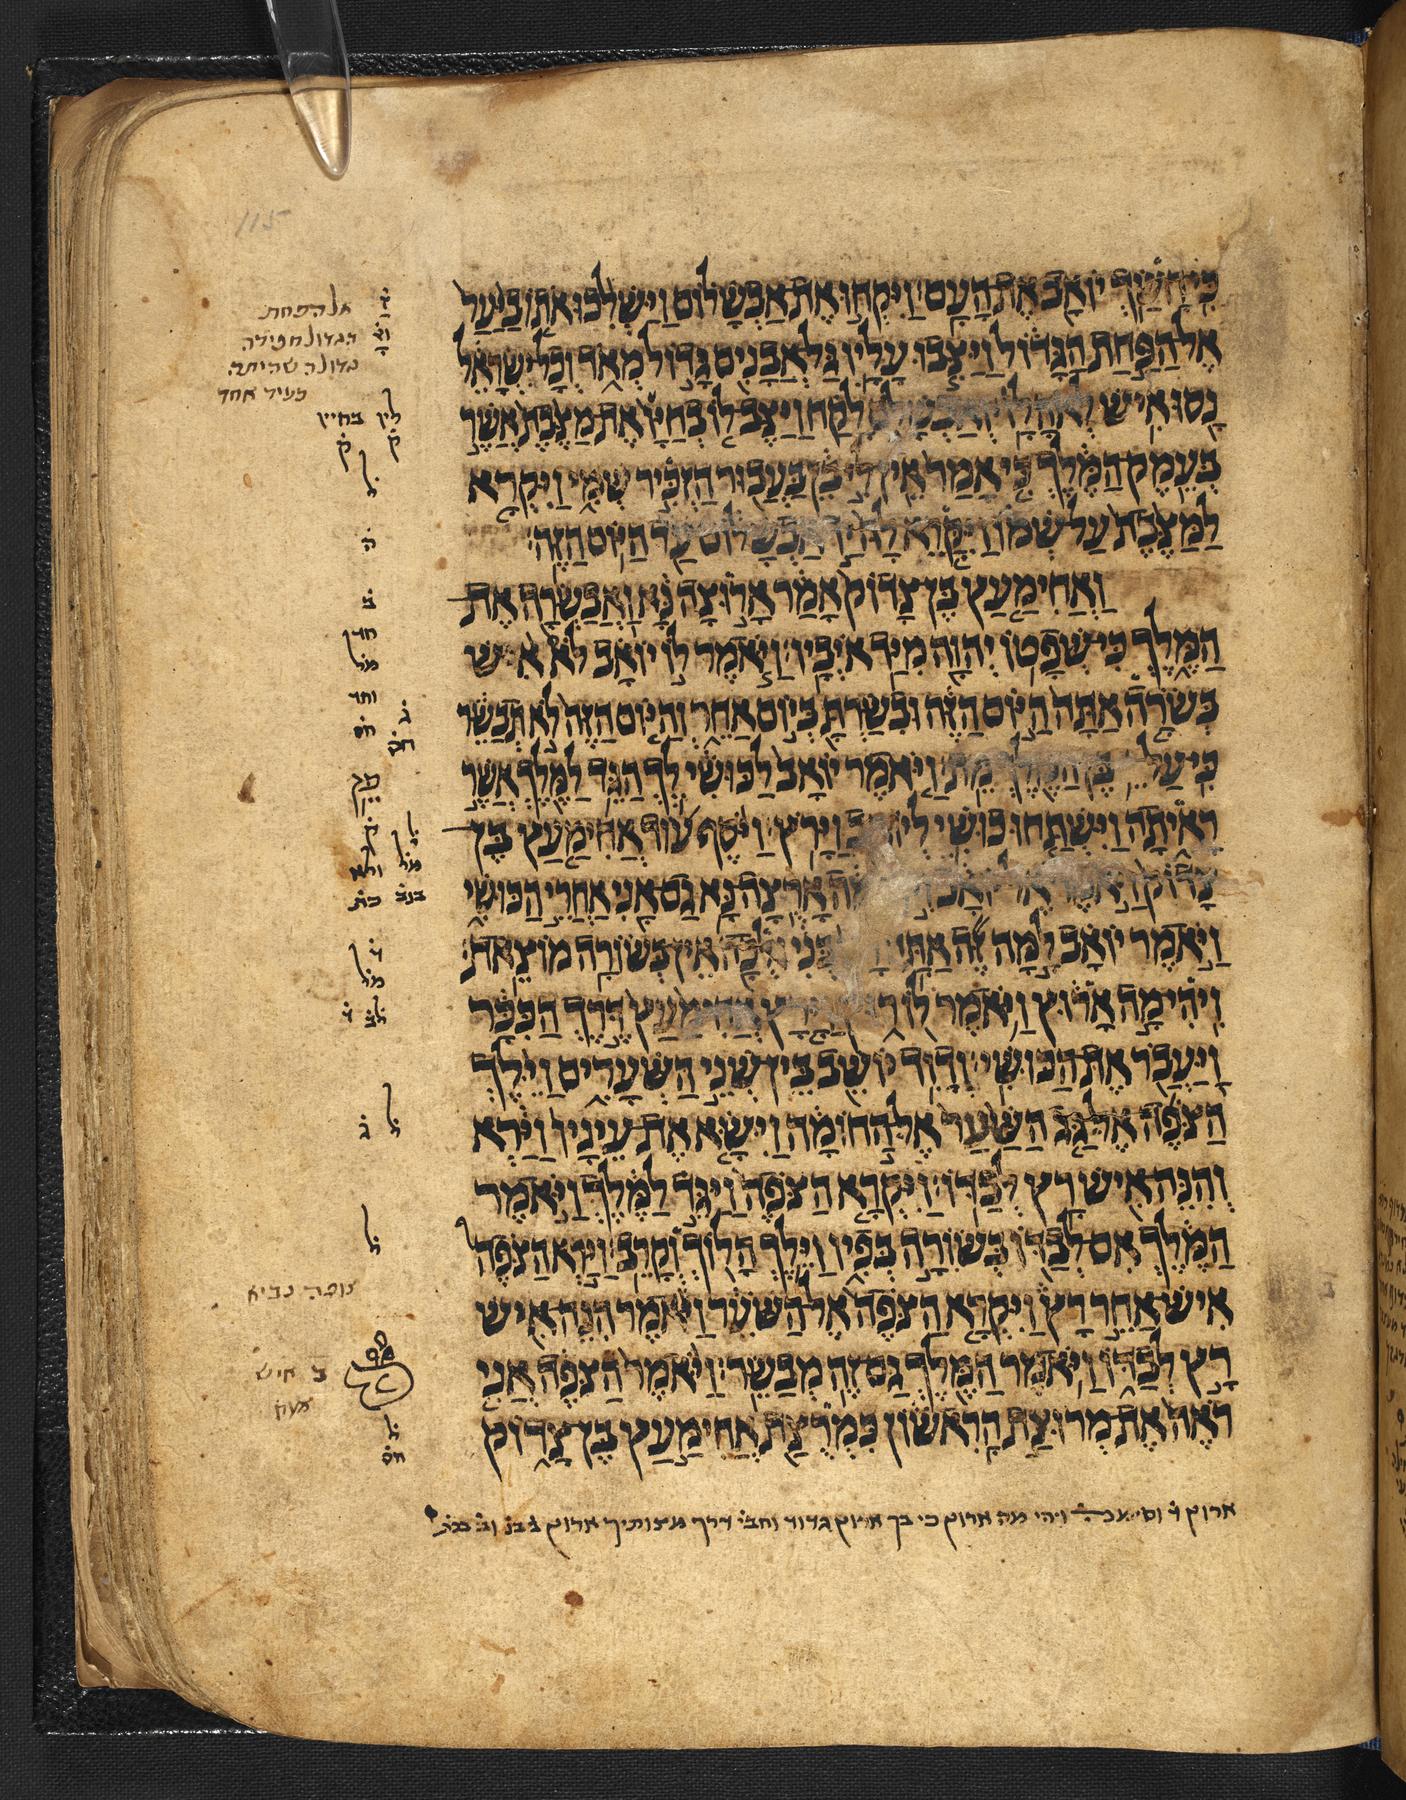 כִּי חָשַׂךְ יוֹאָב אֶת הָעָם׃ וַיִּקְחוּ אֶת אַבְשָׁלוֹם וַיַּשְׁלִכוּ אֹתוֹ בַיַּעַר
אֶל הַפַּחַת הַגָּדוֹל וַיַּצִּבוּ עָלָיו גַּל אֲבָנִים גָּדוֹל מְאֹד וְכָל יִשְׂרָאֵל
נָסוּ אִישׁ לְאֹהָלָו׃ וְאַבְשָׁלֹם לָקַח וַיַּצֶּב לוֹ בְחַיָּו אֶת מַצֶּבֶת אֲשֶׁר
בְּעֵמֶק הַמֶּלֶךְ כִּי אָמַר אֵין לִי בֵן בַּעֲבוּר הַזְכִּיר שְׁמִי וַיִּקְרָא
לַמַּצֶּבֶת עַל שְׁמוֹ וַיִּקָּרֵא לָהּ יַד אַבְשָׁלוֹם עַד הַיּוֹם הַזֶּה׃
וַאֲחִימַעַץ בֶּן צָדוֹק אָמַר אָרוּצָה נָּא וַאֲבַשְּׂרָה אֶת
הַמֶּלֶךְ כִּי שְׁפָטוֹ יְהוָה מִיַּד אֹיְבָיו׃ וַיֹּאמֶר לוֹ יוֹאָב לֹא אִישׁ
בְּשֹׂרָה אַתָּה הַיּוֹם הַזֶּה וּבִשַּׂרְתָּ בְּיוֹם אַחֵר וְהַיּוֹם הַזֶּה לֹא תְבַשֵּׂר
כִּי עַל בֶּן הַמֶּלֶךְ מֵת׃ וַיֹּאמֶר יוֹאָב לַכּוּשִׁי לֵךְ הַגֵּד לַמֶּלֶךְ אֲשֶׁר
רָאִיתָה וַיִּשְׁתַּחוּ כוּשִׁי לְיוֹאָב וַיָּרֹץ׃ וַיֹּסֶף עוֹד אֲחִימַעַץ בֶּן
צָדוֹק וַיֹּאמֶר אֶל יוֹאָב אָרֻצָה נָּא גַם אָנִי אַחֲרֵי הַכּוּשִׁי
וַיֹּאמֶר יוֹאָב לָמָּה זֶּה אַתָּה בְּנִי וּלְכָה אֵין בְּשׂוֹרָה מוֹצֵאת׃
וִיהִי מָה אָרוּץ וַיֹּאמֶר לוֹ וַיָּרָץ אֲחִימַעַץ דֶּרֶךְ הַכִּכָּר
וַיַּעֲבֹר אֶת הַכּוּשִׁי׃ וְדָוִד יוֹשֵׁב בֵּין שְׁנֵי הַשְּׁעָרִים וַיֵּלֶךְ
הַצֹּפֶה אֶל גַּג הַשַּׁעַר אֶל הַחוֹמָה וַיִּשָּׂא אֶת עֵינָיו וַיַּרְא
וְהִנֵּה אִישׁ רָץ לְבַדּוֹ׃ וַיִּקְרָא הַצֹּפֶה וַיַּגֵּד לַמֶּלֶךְ וַיֹּאמֶר
הַמֶּלֶךְ אִם לְבַדּוֹ בְּשׂוֹרָה בְּפִיו וַיֵּלֶךְ הָלוֹךְ וְקָרֵב׃ וַיַּרְא הַצֹּפֶה
אִישׁ אַחֵר רָץ וַיִּקְרָא הַצֹּפֶה אֶל הַשֹּׁעֵר וַיֹּאמֶר הִנֵּה אִישׁ
רָץ לְבַדּוֹ וַיֹּאמֶר הַמֶּלֶךְ גַּם זֶה מְבַשֵּׂר׃ וַיֹּאמֶר הַצֹּפֶה אֲנִי
רֹאֶה אֶת מְרוּצַת הָרִאשׁוֹן כִּמְרֻצַת אֲחִימַעַץ בֶּן צָדוֹק
ויהי מה ארוץ כי בך ארוץ גדוד דרך מצותיך ארוץ
115
אל הפחת
הגדול חפירה
גדולה שהיתה
בעיר אחד